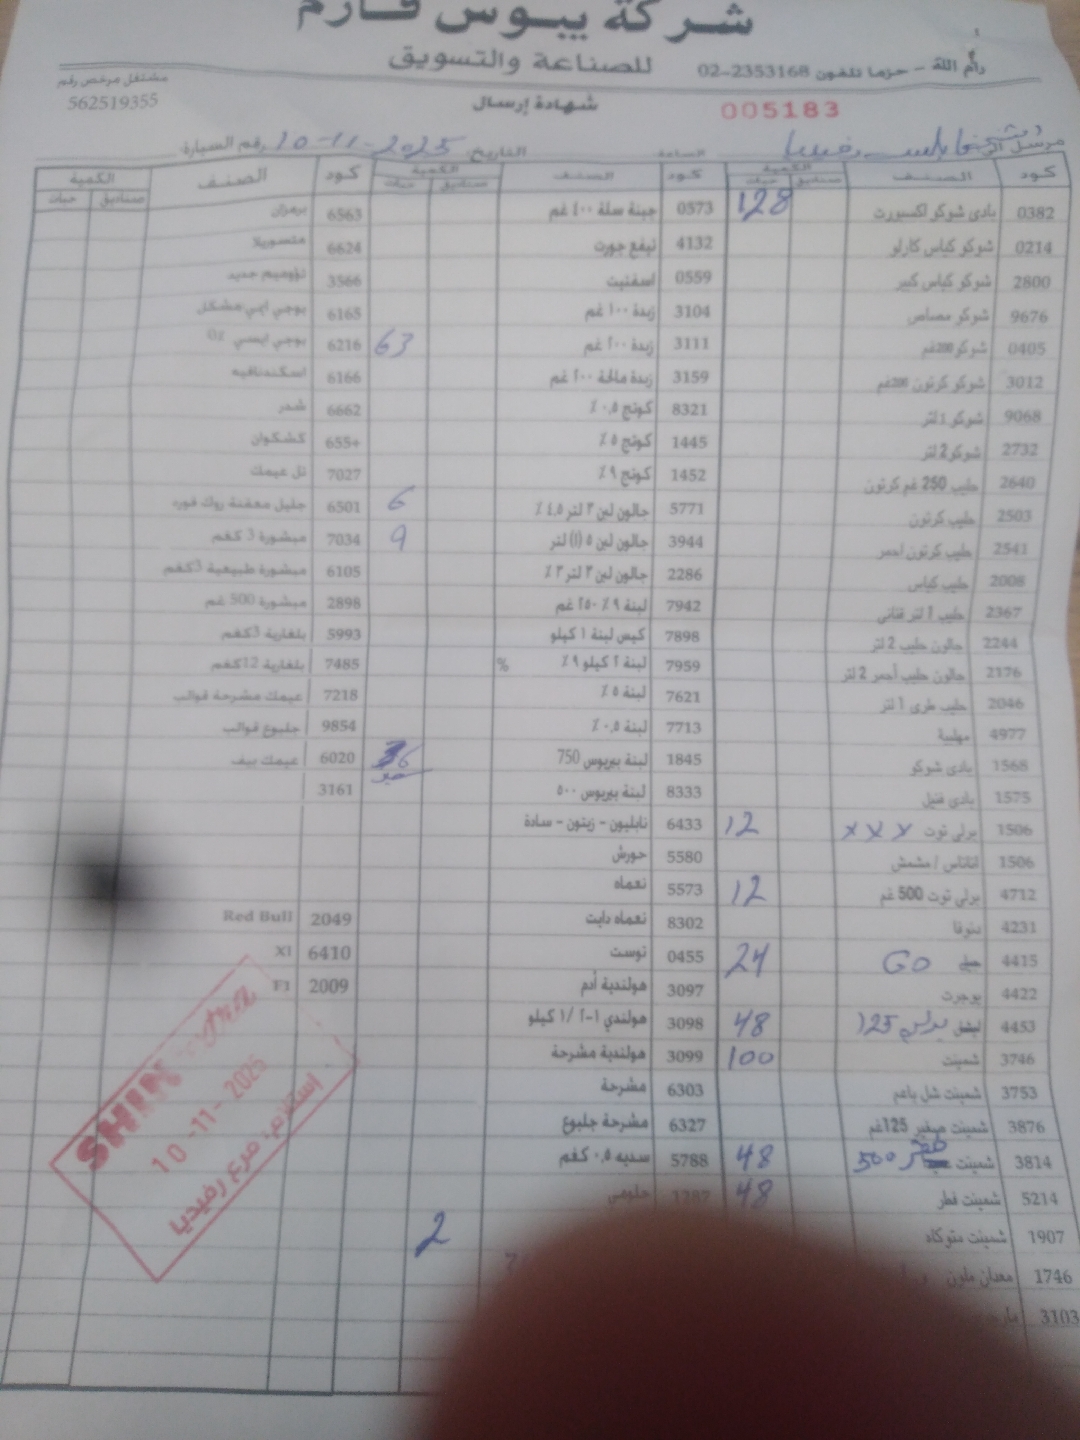 شركة يبوس فارم
للصناعة والتسويق
رام الله - حزما تلفون 02-2353168
مشتغل مرخص رقم
562519355
شهادة إرسال
005183
مرسل الى
الساعة
التاريخ 10-11-2025 رقم السيارة
كود الصنف الكمية كود الصنف الكمية كود الصنف الكمية
صناديق حبات صناديق حبات صناديق حبات
0382 بادي شوكو اكسبورت 128 0573 جبنة سلة ٤٠٠ غم 6563
0214 شوكو كياس كارلو 4132 نيفع جورت 6624
2800 شوكو كياس كبير 0559 3566
9676 شوكو مصاص 3104 زبدة ١٠٠ غم 6165
0405 شوكو 200غم 3111 زبدة ٢٠٠ غم 63 6216
3012 شوكو كرتون 200غم 3159 زبدة مالحة ٢٠٠ غم 6166 اسكندنافيه
9068 شوكو 1 لتر 8321 كوتج ٠,٥ ٪ 6662
2732 شوكو 2 لتر 1445 كوتج ٥ ٪ كشكوان
2640 حليب 250 غم كرتون 1452 كوتج ٩ ٪ 7027 تل عيمك
2503 حليب كرتون 5771 جالون لبن ٣ لتر ٤,٥ ٪ 6 6501
2541 حليب كرتون احمر 3944 جالون لبن ٥ (١) لتر 9 7034 مبشورة 3 كغم
2008 حليب كياس 2286 جالون لبن ٣ لتر ٣ ٪ 6105 مبشورة طبيعية 3كغم
2367 حليب 1 لتر قناني 7942 لبنة ٩ ٪ ٢٥٠ غم 2898 مبشورة 500 غم
2244 جالون حليب 2 لتر 7898 كيس لبنة ١ كيلو 5993 بلغارية 3كغم
2176 جالون حليب أحمر 2 لتر 7959 لبنة ٢ كيلو ٩ ٪ % 7485 بلغارية 12كغم
2046 حليب طري 1 لتر 7621 لبنة ٥ ٪ 7218 عيمك مشرحة قوالب
4977 مهلبية 7713 لبنة ٠,٥ ٪ 9854 جلبوع قوالب
1568 بادي شوكو 1845 لبنة بيريوس 750 6020 عيمك بيف
1575 بادي فنيل 8333 لبنة بيريوس ٥٠٠ 3161
1506 برلي توت x x x 12 6433 نابليون - زيتون - سادة
1506 اناناس / مشمش 5580 حورش
4712 برلي توت 500 غم 12 5573 نعماه
4231 دنوقا 8302 نعماه دايت 2049 Red Bull
4415 GO 24 0455 توست 6410 Xl
4422 يوجرت 3097 هولندية أدم 2009
4453 125 48 3098 هولندي
3746 شمينت 100 3099 هولندية مشرحة
3753 شمينت شل باعم 6303 مشرحة
3876 شمينت صغير 125غم 6327 مشرحة جلبوع
3814 شمينت 500 48 5788 ٠,٥ كغم
5214 شمينت قطر 48
1907 شمينت متوكاه 2
1746 معدان ملون
3103
10 -11- 2025
استلام. فرع رفيديا